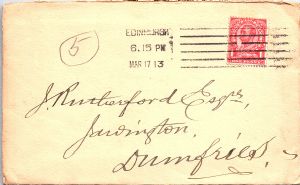 5
EDINBURGH
6.15 PM
MAR 17 13
J. Rutherford Esqre,
Jardington,
Dumfries.